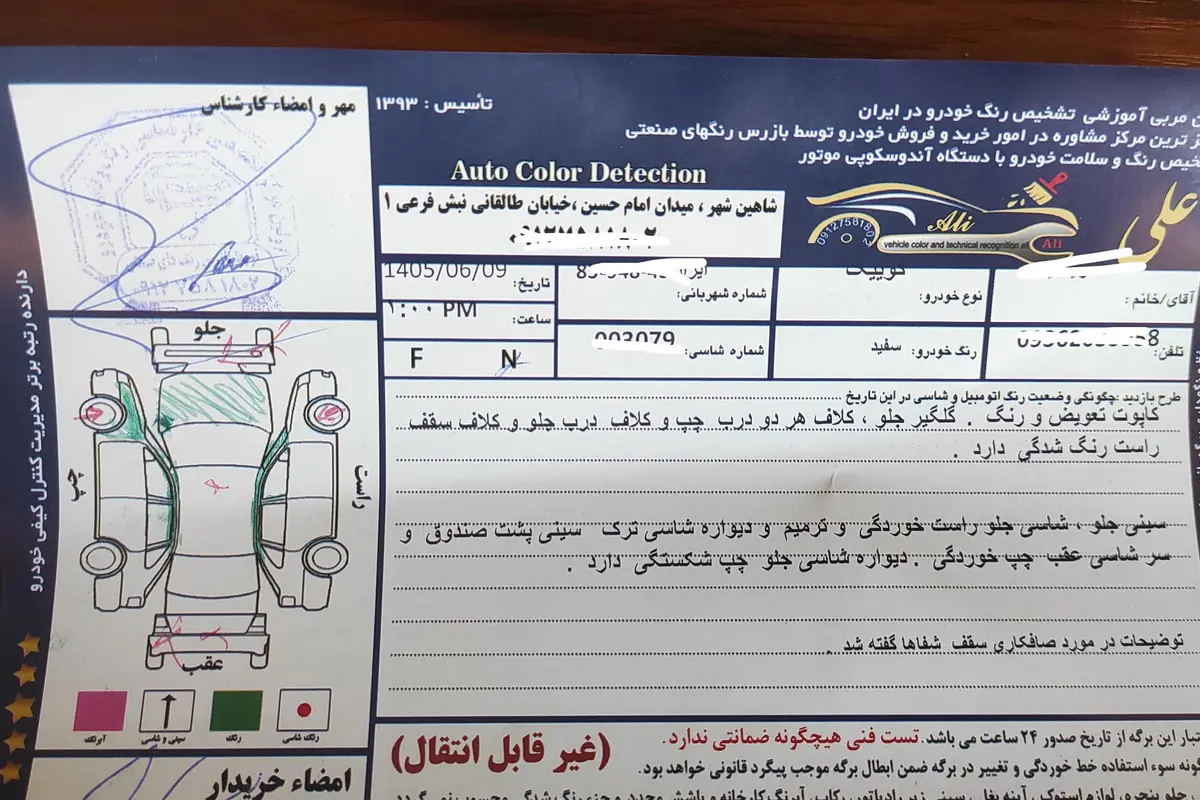 مربی آموزشی تشخیص رنگ خودرو در ایران
ترین مرکز مشاوره در امور خرید و فروش خودرو توسط بازرس رنگهای صنعتی
رنگ و سلامت خودرو با دستگاه آندوسکوپی موتور
تأسیس : ۱۳۹۳
مهر و امضاء کارشناس
Auto Color Detection
شاهین شهر ، میدان امام حسین ،خیابان طالقانی نبش فرعی ۱
علی
Ali
09127581802
vehicle color and technical recognition ali
Ali
۰۹۱۲۷۵۸۱۸۰۲
آقای/خانم :
نوع خودرو: کوییک
شماره شهربانی:
تاریخ: 1405/06/09
تلفن:
رنگ خودرو: سفید
شماره شاسی: 003079
ساعت: ۱:۰۰ PM
F N
طرح بازدید :چگونگی وضعیت رنگ اتومبیل و شاسی در این تاریخ
کاپوت تعویض و رنگ . گلگیر جلو ، کلاف هر دو درب چپ و کلاف درب جلو و کلاف سقف
راست رنگ شدگی دارد .
سینی جلو ، شاسی جلو راست خوردگی و ترمیم و دیواره شاسی ترک سینی پشت صندوق و
سر شاسی عقب چپ خوردگی . دیواره شاسی جلو چپ شکستگی دارد .
توضیحات در مورد صافکاری سقف شفاها گفته شد .
جلو
چپ
راست
عقب
آبرنگ
سینی و شاسی
رنگ
رنگ شاسی
دارنده رتبه برتر مدیریت کنترل کیفی خودرو
امضاء خریدار
(غیر قابل انتقال)
این برگه از تاریخ صدور ۲۴ ساعت می باشد. تست فنی هیچگونه ضمانتی ندارد.
سوء استفاده خط خوردگی و تغییر در برگه ضمن ابطال برگه موجب پیگرد قانونی خواهد بود.